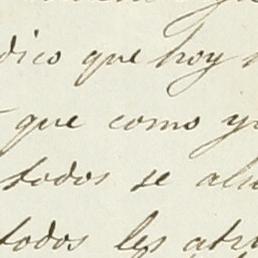 dico que hoy
que como yo
todos se al
todos les atr